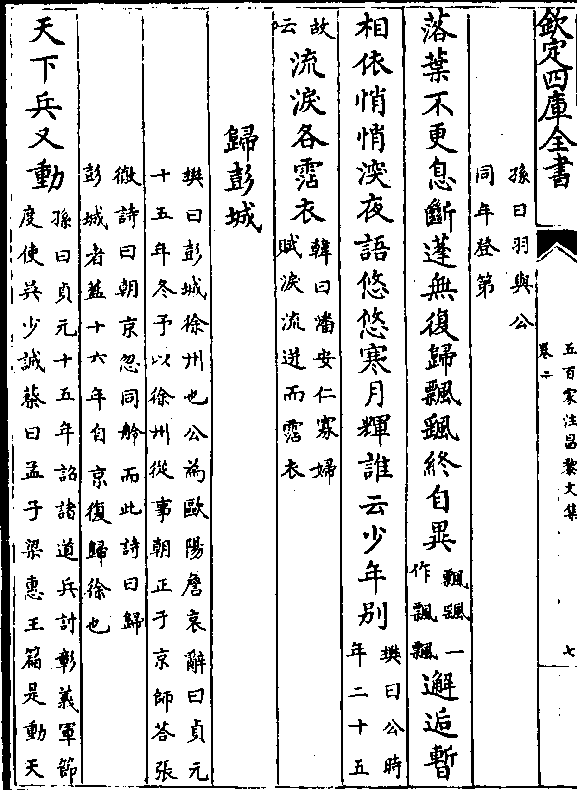 欽定四庫全書
五百家注昌黎文集
卷二
七
孫曰羽與公
同年登第
落葉不更息斷蓬無復歸飄颻終自異
飄颻一
作颻飄
邂逅暫
相依悄悄深夜語悠悠寒月輝誰云少年別
樊曰公時
年二十五
故
云
流淚各霑衣
韓曰潘安仁寡婦
賦淚流迸而霑衣
歸彭城
樊曰彭城徐州也公為歐陽詹哀辭曰貞元
十五年冬予以徐州從事朝正于京師答張
徹詩曰朝京忽同舲而此詩曰歸
彭城者蓋十六年自京復歸徐也
天下兵又動
孫曰貞元十五年詔諸道兵討彰義軍節
度使吳少誠蔡曰孟子梁惠王篇是動天